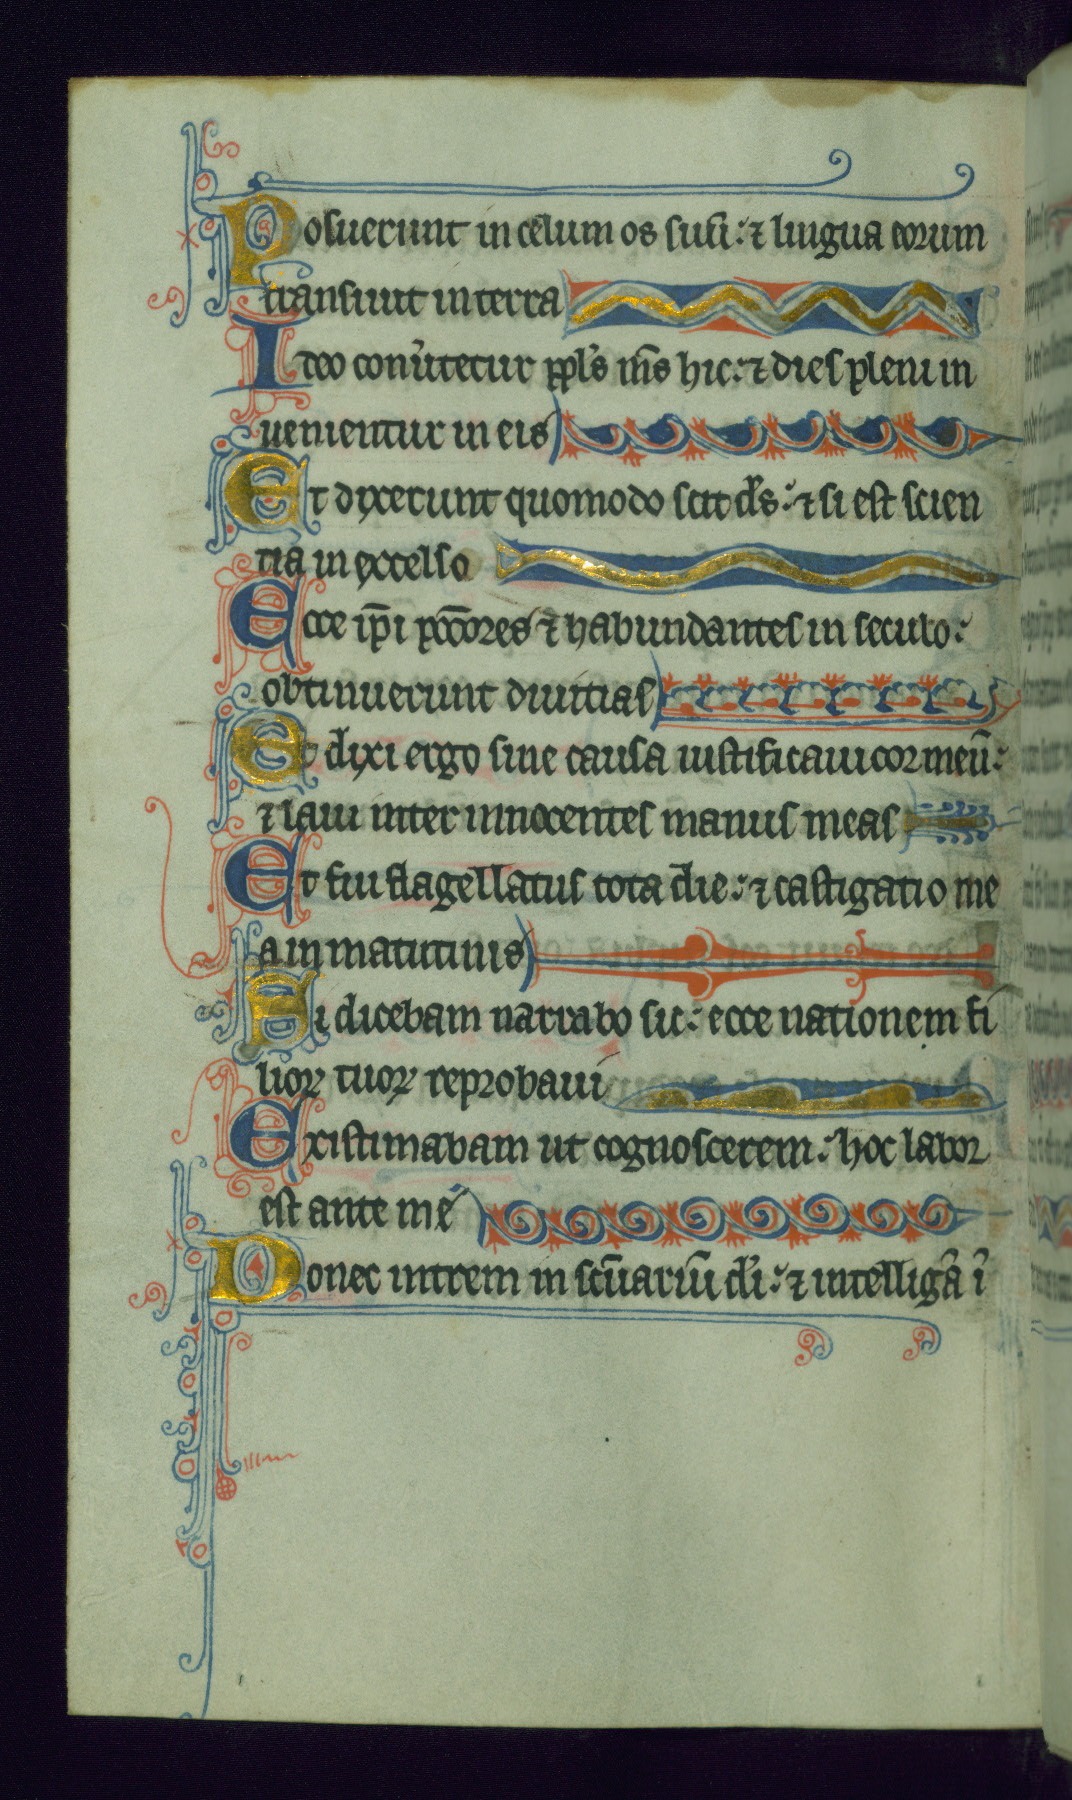 Posuerunt in celum os suũ: ⁊ lingua eorum
transiuit in terra
Ideo conũtetur ppl̃s m̃s hic: ⁊ dies pleni in
uenientur in eis
Et dixerunt quomodo scit d̃s: ⁊ si est scien
tia in excelso
Ecce ip̃i pc̃c̃ores ⁊ habundantes in seculo:
obtinuerunt diuitias
Et dixi ergo sine causa iustificaui cor meũ:
⁊ laui inter innocentes manus meas
Et fui flagellatus tota die: ⁊ castigatio me
a in matutinis
Si dicebam narrabo sic: ecce nationem fi
lioꝝ tuoꝝ reprobaui
Existimabam ut cognoscerem: hoc labor
est ante me
Donec intrem in sc̃uariũ dĩ: ⁊ intelligã ĩ